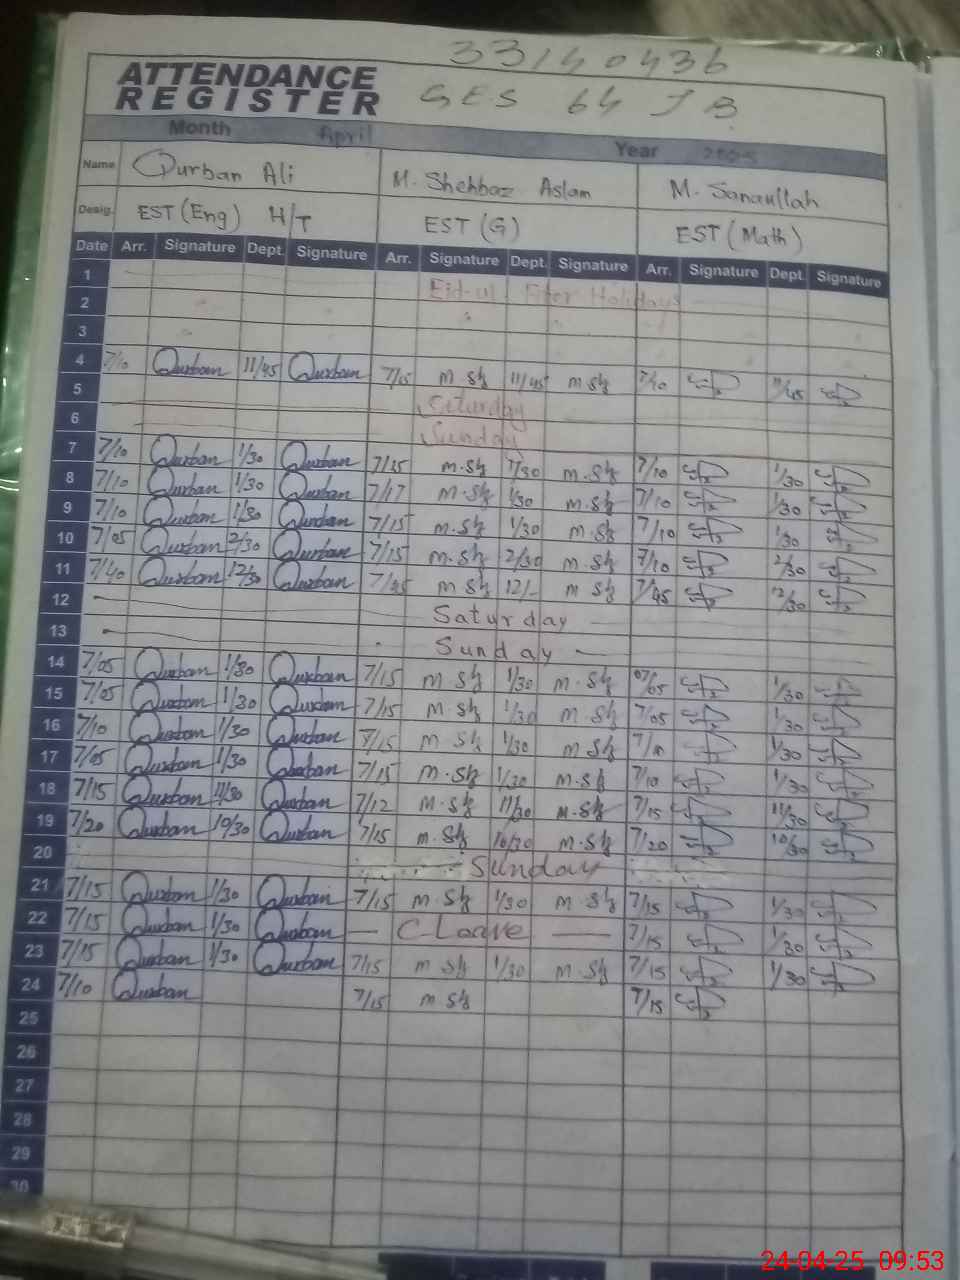 33140436
ATTENDANCE
REGISTER
GES 64 JB
Month April Year 2025
Name Qurban Ali M. Shehbaz Aslam M. Sanaullah
Desig. EST (Eng) H/T EST (G) EST (Math)
Date Arr. Signature Dept. Signature Arr. Signature Dept. Signature Arr. Signature Dept. Signature
1 Eid-ul Fiter Holidays
2
3
4 7/10 Qurban 11/45 Qurban 7/15 m.sh 11/45 m sh 7/10 11/45
5 Saturday
6 Sunday
7 7/10 Qurban 1/30 Qurban 7/15 m.sh 1/30 m.sh 7/10 1/30
8 7/10 Qurban 1/30 Qurban 7/17 m.sh 1/30 m.sh 7/10 1/30
9 7/10 Qurban 1/30 Qurban 7/15 m.sh 1/30 m.sh 7/10 1/30
10 7/05 Qurban 2/30 Qurban 7/15 m.sh 2/30 m.sh 7/10 2/30
11 7/40 Qurban 12/30 Qurban 7/45 m sh 12/- m sh 7/45 12/30
12 Saturday
13 Sunday
14 7/05 Qurban 1/30 Qurban 7/15 m sh 1/30 m.sh 07/05 1/30
15 7/05 Qurban 1/30 Qurban 7/15 m sh 1/30 m sh 7/05 1/30
16 7/10 Qurban 1/30 Qurban 7/15 m sh 1/30 m sh 7/10 1/30
17 7/05 Qurban 1/30 Qurban 7/15 m.sh 1/30 m.sh 7/10 1/30
18 7/15 Qurban 11/30 Qurban 7/12 m.sh 11/30 m.sh 7/15 11/30
19 7/20 Qurban 10/30 Qurban 7/15 m.sh 10/30 m.sh 7/20 10/30
20 Sunday
21 7/15 Qurban 1/30 Qurban 7/15 m sh 1/30 m sh 7/15 1/30
22 7/15 Qurban 1/30 Qurban C Leave 7/15 1/30
23 7/15 Qurban 1/30 Qurban 7/15 m sh 1/30 m.sh 7/15 1/30
24 7/10 Qurban 7/15 m sh 7/15
25
26
27
28
29
30
24-04-25 09:53